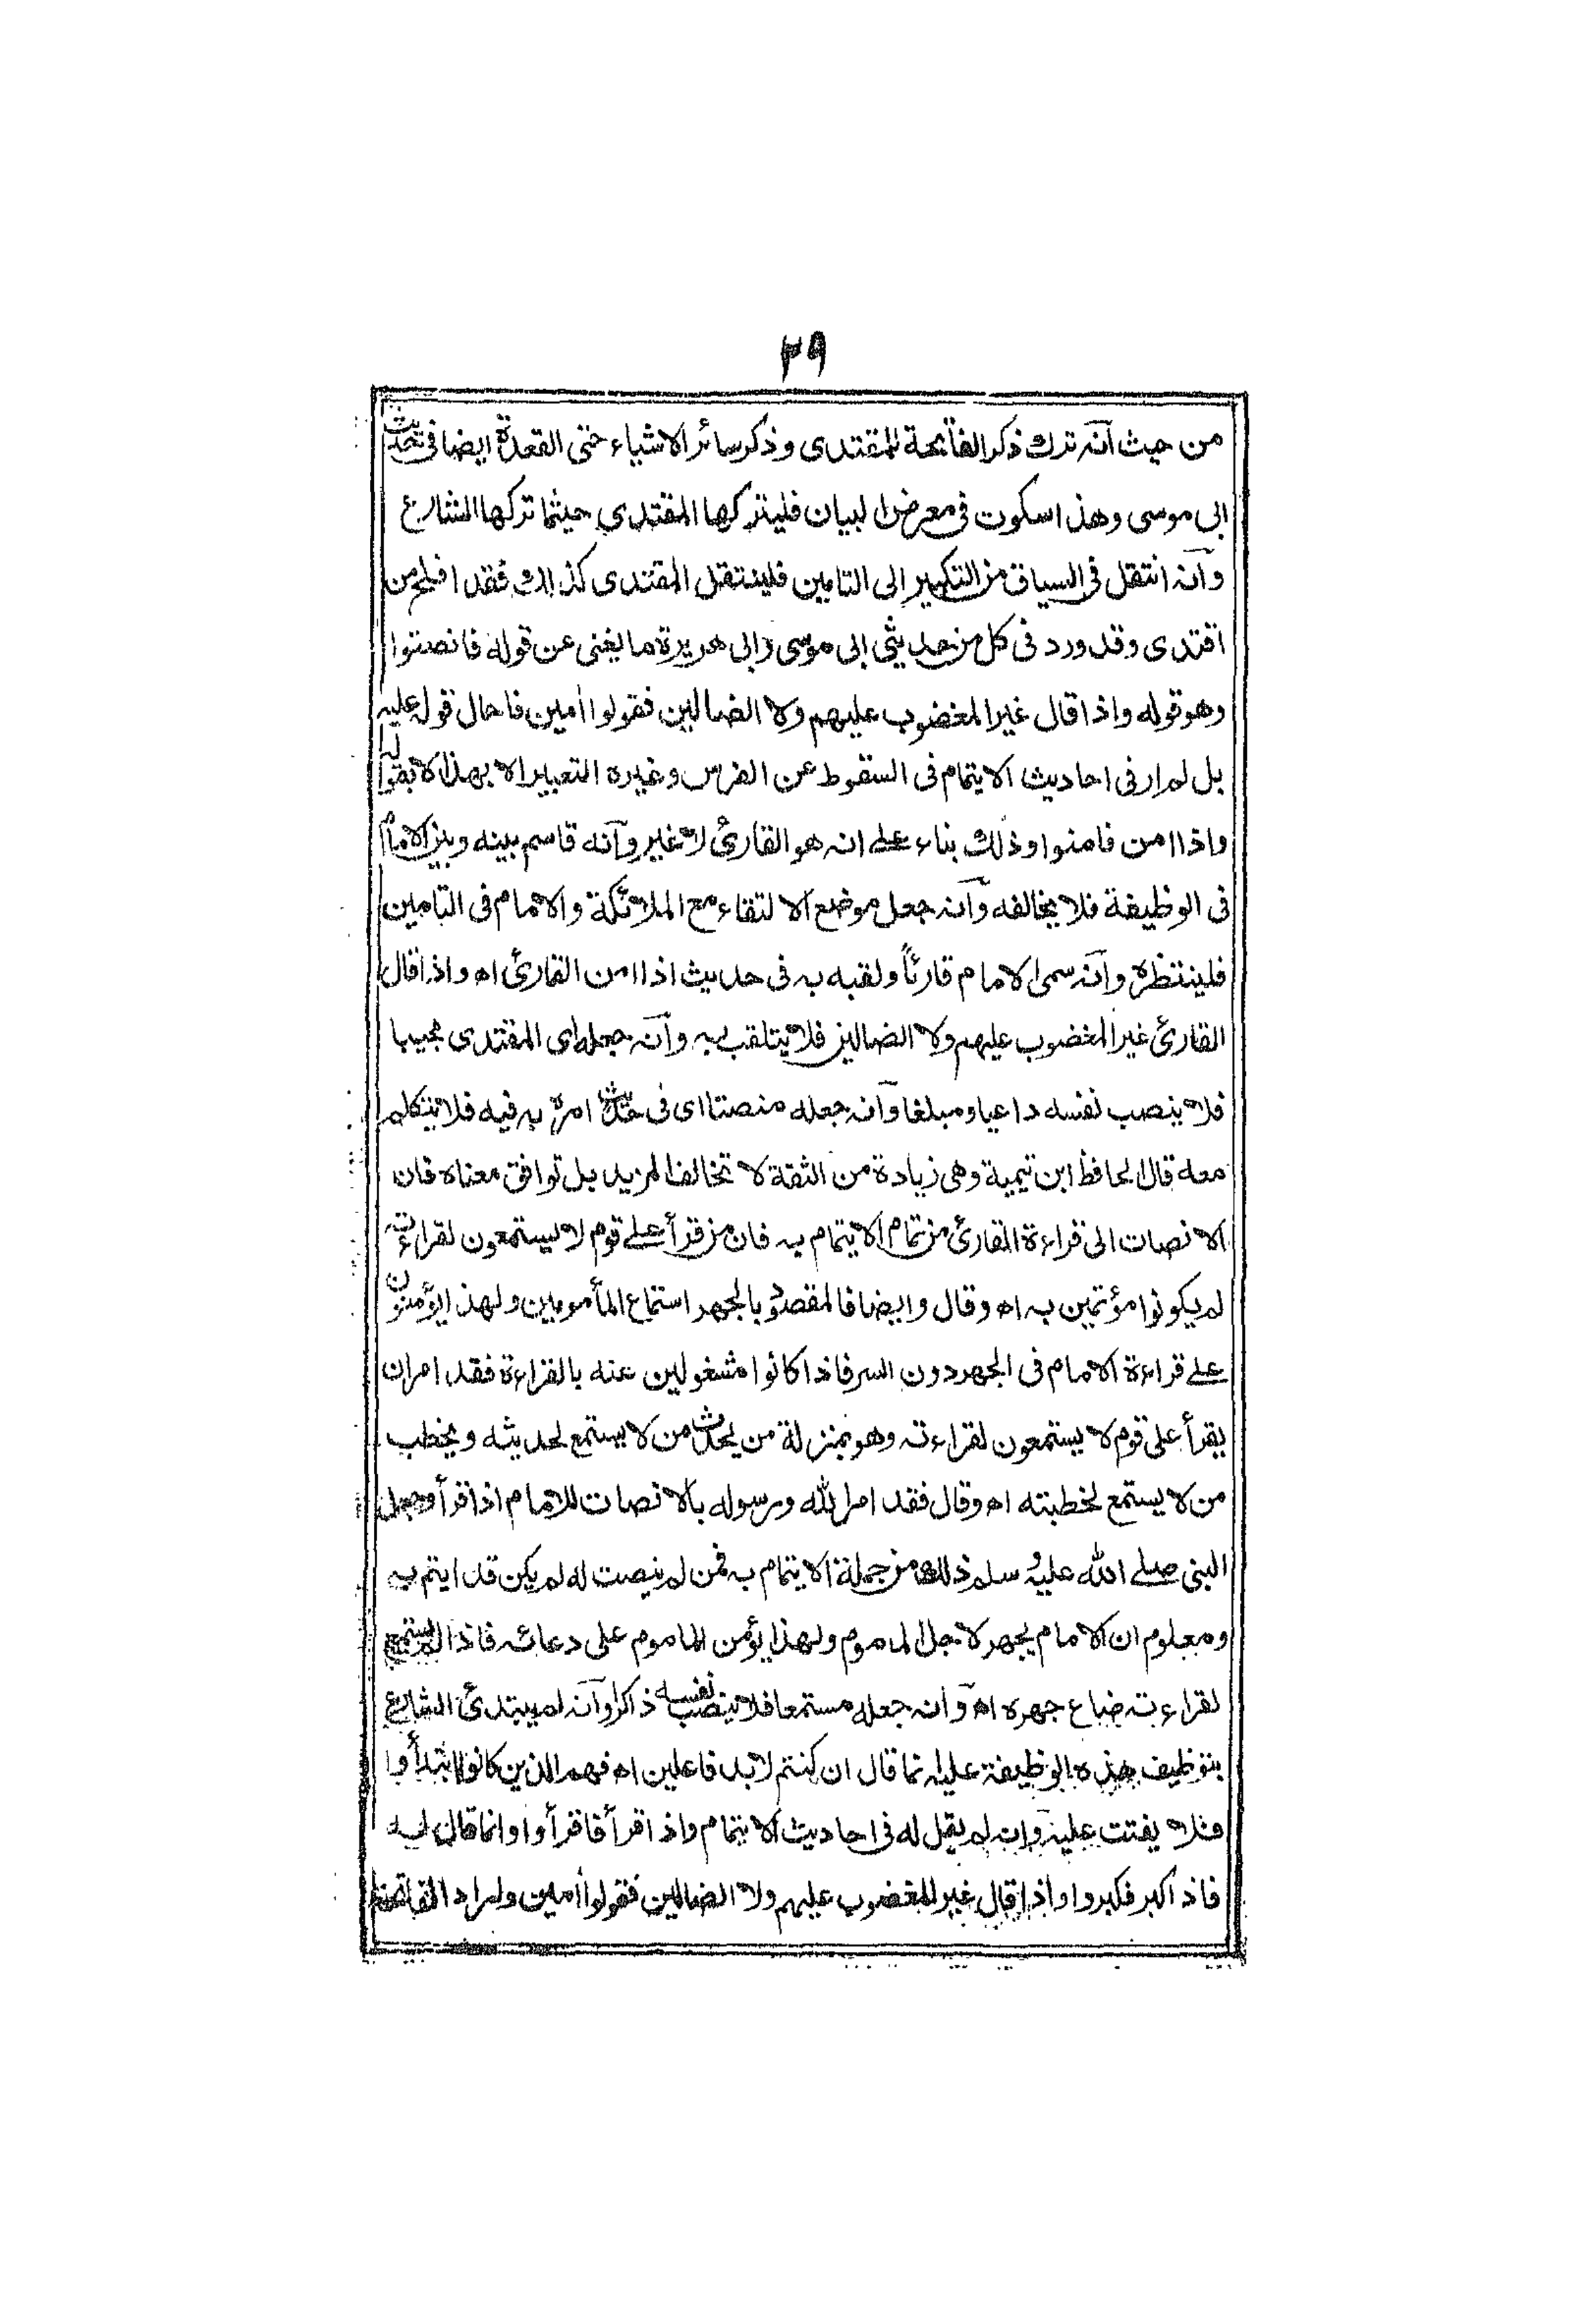 ٢٩
من حيث آنه ترك ذكر الفاتحة للمقتدى وذكر سائر الاشياء حتى القعدة ايضا فى حديث
ابى موسى وهذا سكوت فى معرض البيان فليتركها المقتدى حيثما تركها الشارع
وآنه انتقل فى السياق من التكبير الى التامين فلينتقل المقتدى كذلك فقد افلح من
اقتدى وقد ورد فى كل من حديثى ابى موسى وابى هريرة ما يغنى عن قوله فانصتوا
وهو قوله واذا قال غير المغضوب عليهم ولا الضالين فقولوا امين فاحال قوله عليه
بل لم ار فى احاديث الايتمام فى السقوط عن الفرس وغيره التعبير الا بهذا لا بقوله
واذا امن فامنوا وذلك بناء على انه هو القارئ لا غير وآنه قاسم بينه وبين الامام
فى الوظيفة فلا يخالفه وآنه جعل موضع الالتقاء مع الملائكة والامام فى التامين
فلينتظره وآنه سمى الامام قارئاً ولقبه به فى حديث اذا امن القارئ اه واذا قال
القارئ غير المغضوب عليهم ولا الضالين فلا يتلقب به وآنه جعله اى المقتدى مجيبا
فلا ينصب نفسه داعيا ومبلغا وآنه جعله منصتا اى فى حديث امره به فيه فلا يتكلم
معه قال الحافظ ابن تيمية وهى زيادة من الثقة لا تخالف المزيد بل توافق معناه فان
الانصات الى قراءة القارئ من تمام الايتمام به فان من قرأ على قوم لا يستمعون لقراءته
لم يكونوا مؤتمين به اه وقال وايضا فالمقصود بالجهر استماع المأمومين ولهذا يؤمنون
على قراءة الامام فى الجهر دون السر فاذا كانوا مشغولين عنه بالقراءة فقد امر ان
يقرأ على قوم لا يستمعون لقراءته وهو بمنزلة من يحدث من لا يستمع لحديثه ويخطب
من لا يستمع لخطبته اه وقال فقد امر الله ورسوله بالانصات للامام اذا قرأ وجعل
النبى صلى الله عليه وسلم ذلك من جملة الايتمام به فمن لم ينصت له لم يكن قد ايتم به
ومعلوم ان الامام يجهر لاجل الماموم ولهذا يؤمن الماموم على دعائه فاذا لم يستمع
لقراءته ضاع جهره اه وآنه جعله مستمعا فلا ينصب نفسه ذاكرا وآنه لم يبتدئ الشارع
بتوظيف هذه الوظيفة عليه انما قال ان كنتم لا بد فاعلين اه فهم الذين كانوا ابتدأوا
فلا يفتت عليه وانه لم يقل له فى احاديث الايتمام واذا قرأ فاقرأوا وانما قال له
فاذا كبر فكبروا واذا قال غير المغضوب عليهم ولا الضالين فقولوا امين ولم